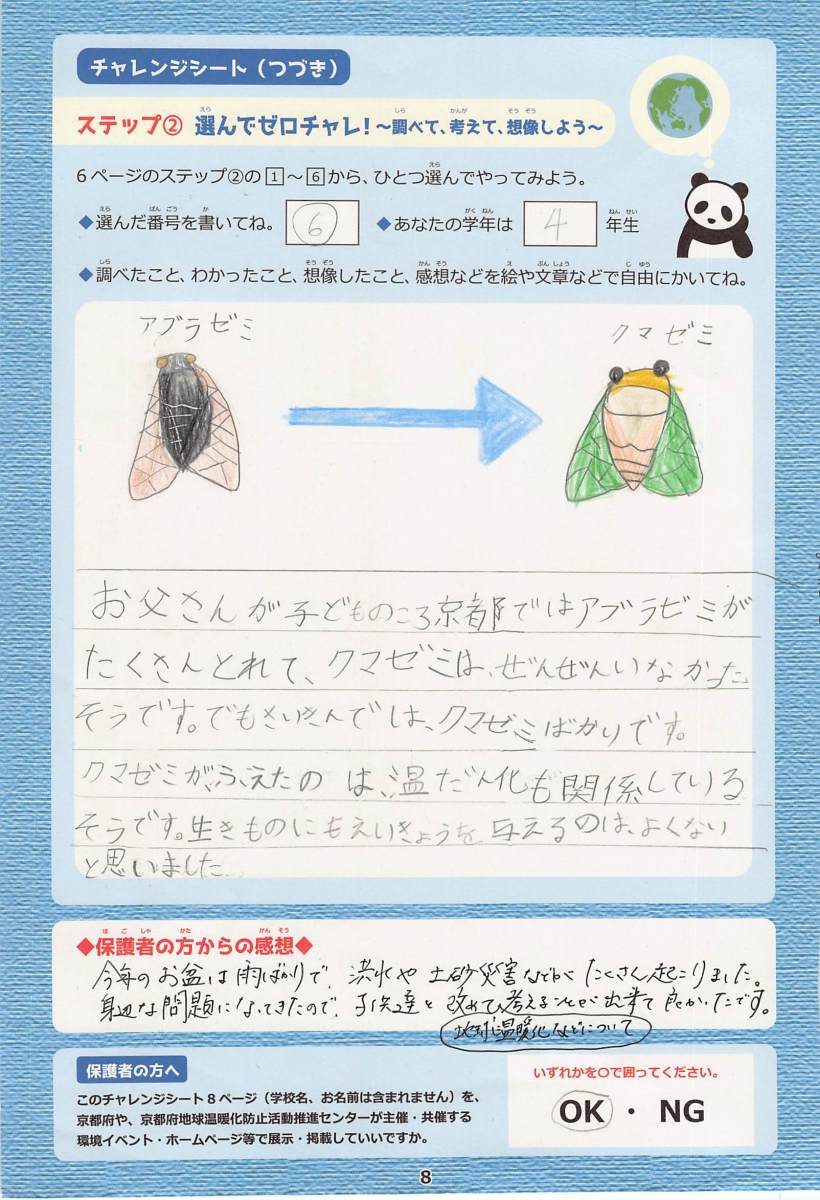 チャレンジシート(つづき)
ステップ② 選んでゼロチャレ!~調べて、考えて、想像しよう~
6ページのステップ②の1~6から、ひとつ選んでやってみよう。
◆選んだ番号を書いてね。 6 ◆あなたの学年は 4 年生
◆調べたこと、わかったこと、想像したこと、感想などを絵や文章などで自由にかいてね。
アブラゼミ クマゼミ
お父さんが子どものころ京都ではアブラゼミが
たくさんとれて、クマゼミは、ぜんぜんいなかった
そうです。でもさいきんでは、クマゼミばかりです。
クマゼミが、ふえたのは、温だん化も関係している
そうです。生きものにもえいきょうを与えるのは、よくない
と思いました。
◆保護者の方からの感想◆
今年のお盆は雨ばかりで、洪水や土砂災害などがたくさん起こりました。
身近な問題になってきたので、子供達と改めて考えることが出来て良かったです。
地球温暖化などについて
保護者の方へ
いずれかを○で囲ってください。
このチャレンジシート8ページ(学校名、お名前は含まれません)を、
京都府や、京都府地球温暖化防止活動推進センターが主催・共催する
環境イベント・ホームページ等で展示・掲載していいですか。
OK ・ NG
8